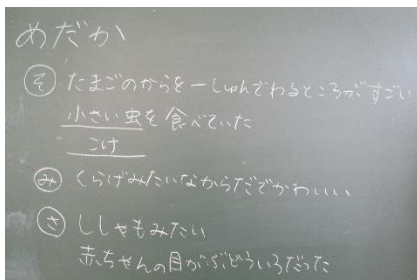 めだか
そ たまごのからを一しゅんでわるところがすごい
小さい虫を食べていた
こけ
み くらげみたいなからだでかわいい
さ ししゃもみたい
赤ちゃんの目がぶどういろだった